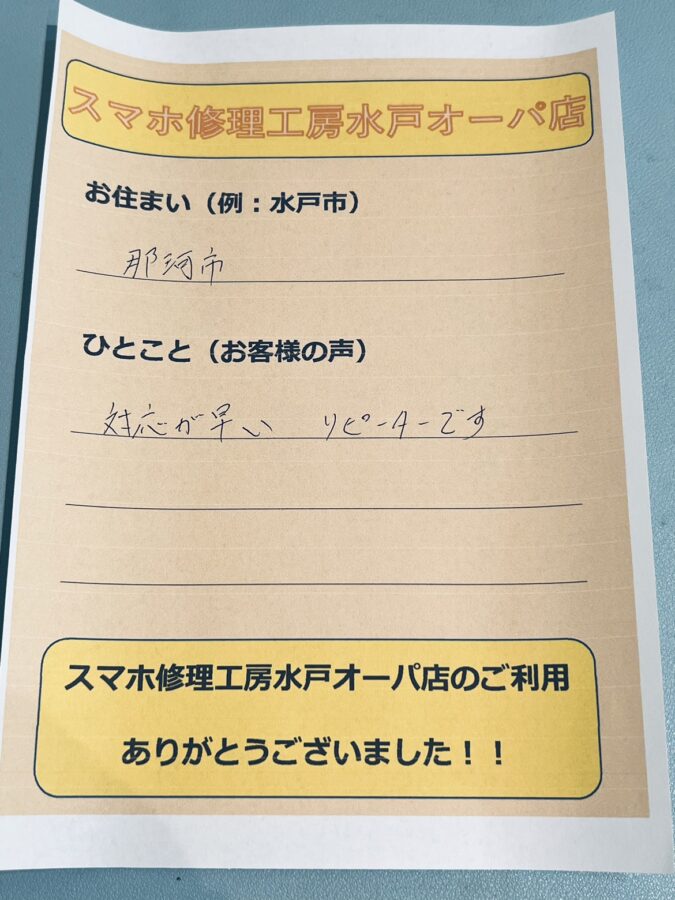 スマホ修理工房水戸オーパ店
お住まい（例：水戸市）
那珂市
ひとこと（お客様の声）
対応が早い　リピーターです
スマホ修理工房水戸オーパ店のご利用
ありがとうございました！！